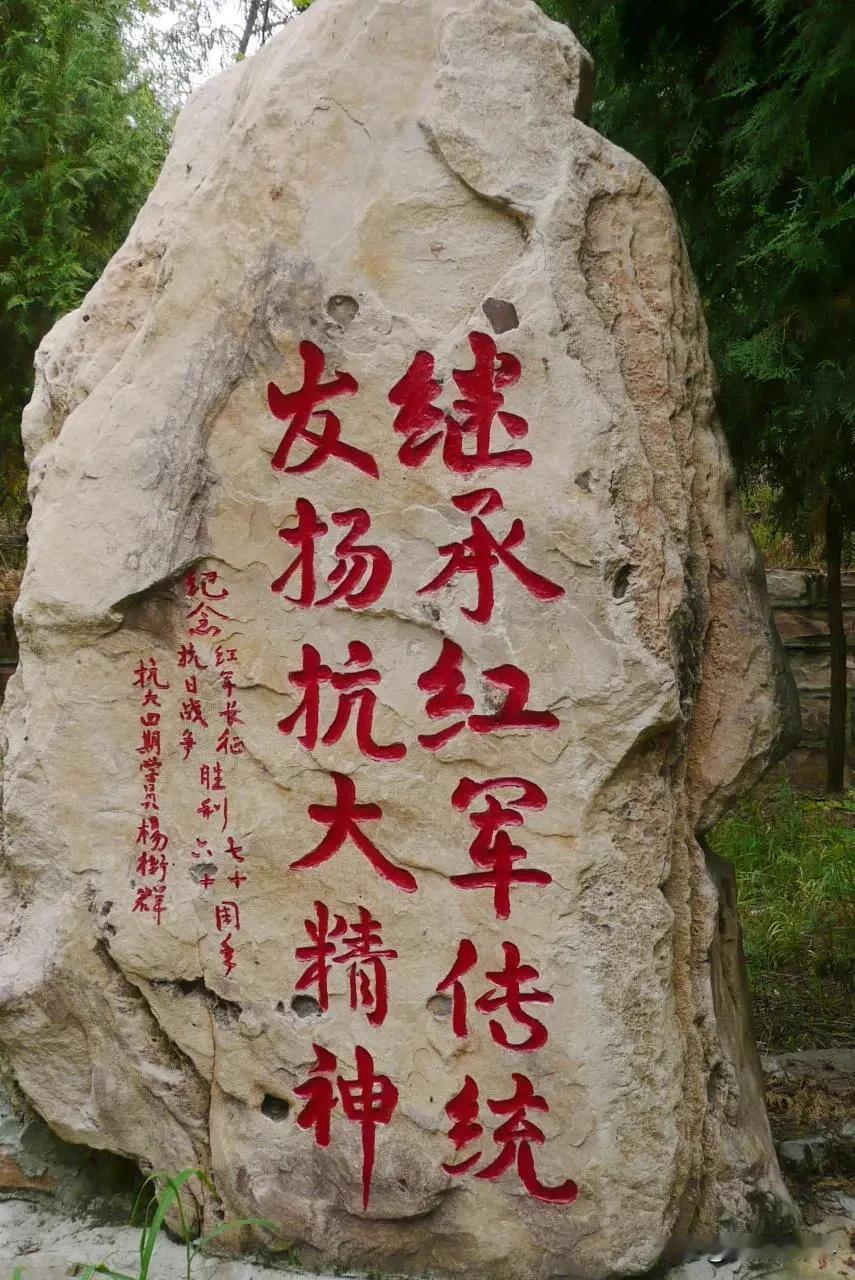 继承红军传统
发扬抗大精神
纪念
红军长征
抗日战争
胜利
七十
六十
周年
抗大四期学员杨群